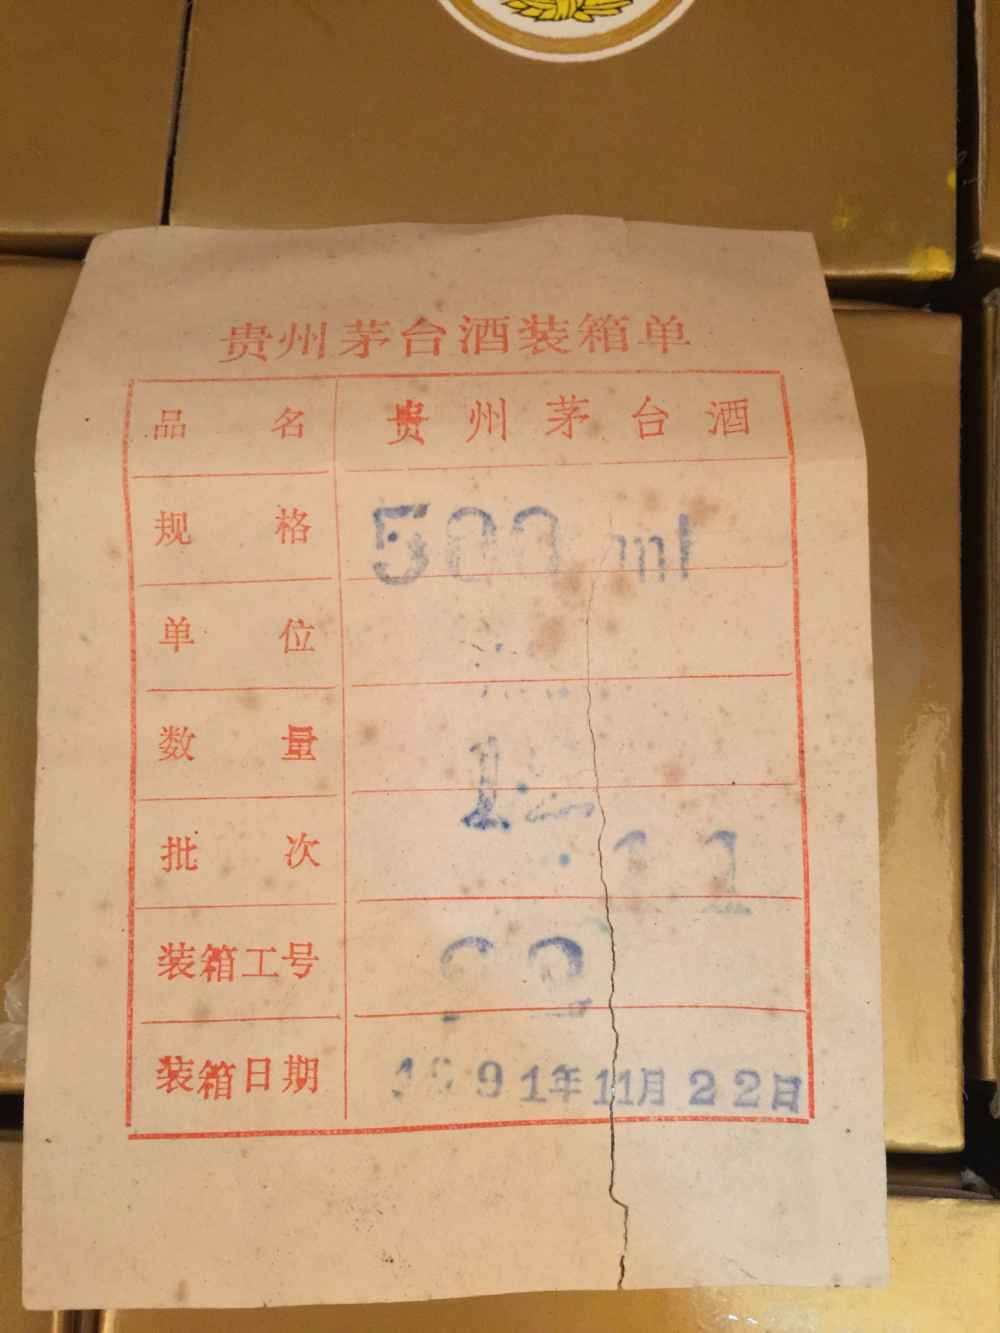 贵州茅台酒装箱单
品名 贵州茅台酒
规格 500ml
单位
数量 12
批次 11
装箱工号 22
装箱日期 1991年11月22日